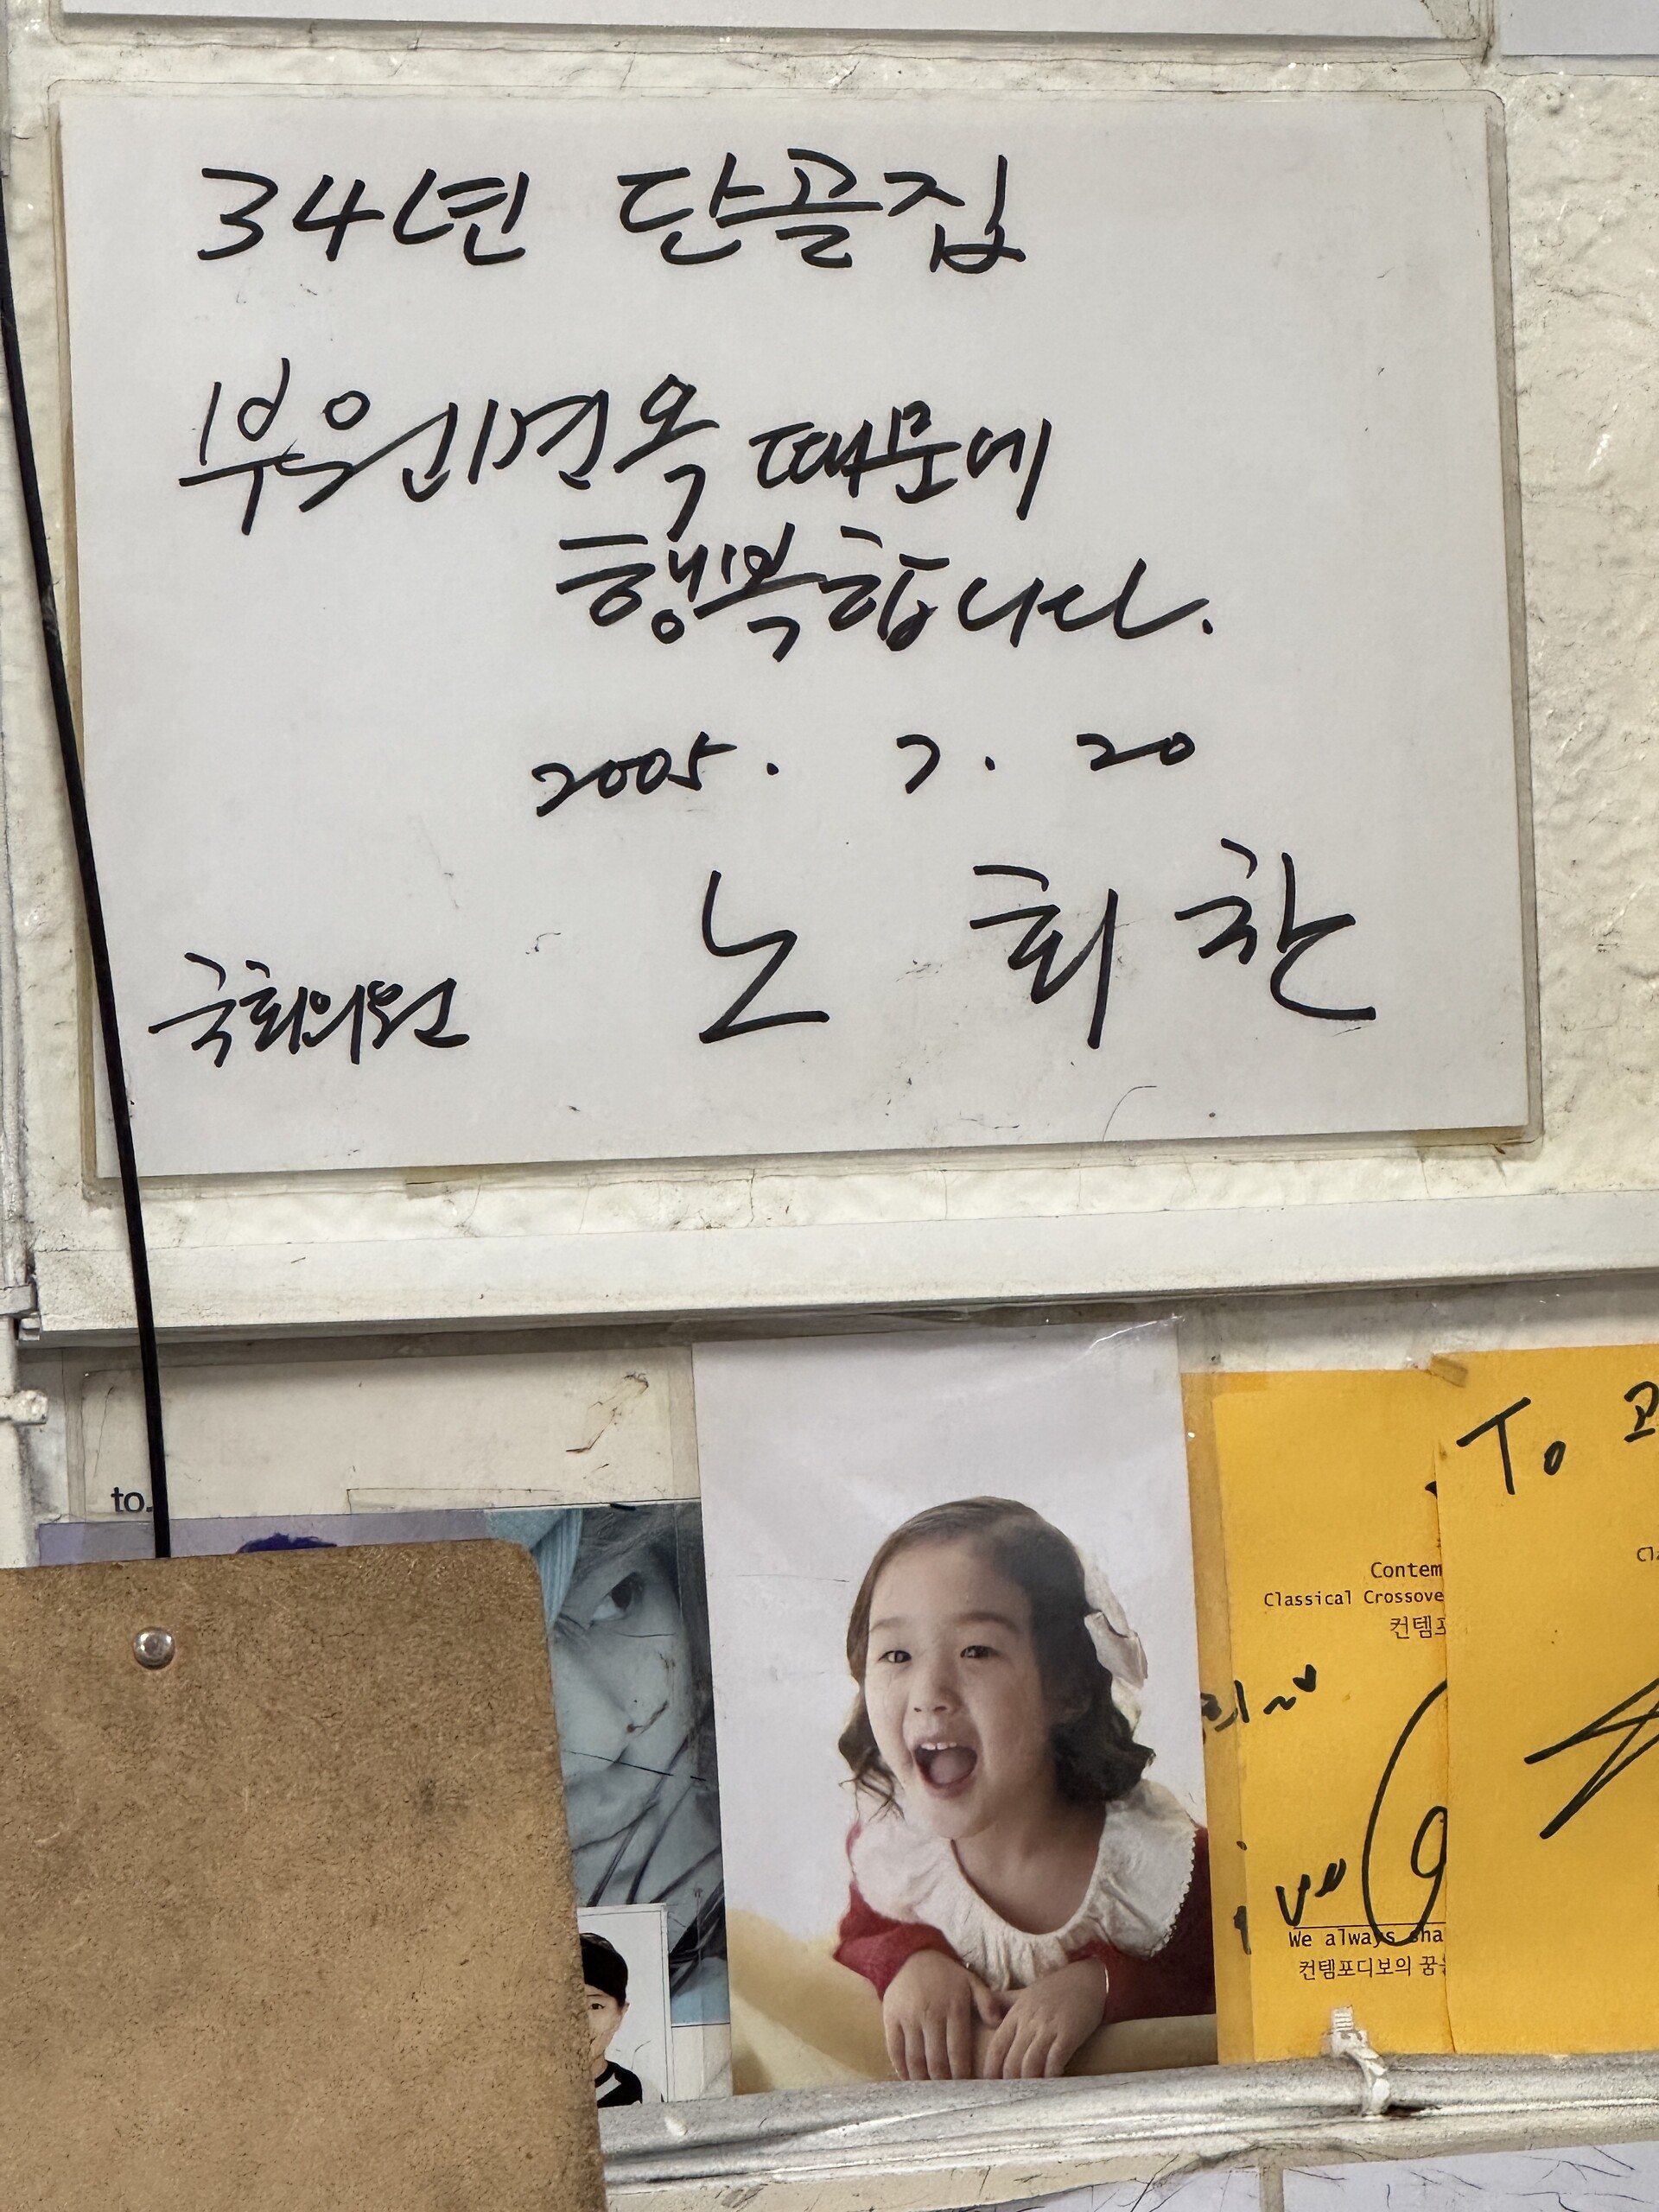 34년 단골집
부원면옥 때문에
행복합니다.
2005. 7. 20
국회의원 노회찬
to.
Contem
Classical Crossove
컨템포
We always sha
컨템포디보의 꿈을
To
Cla